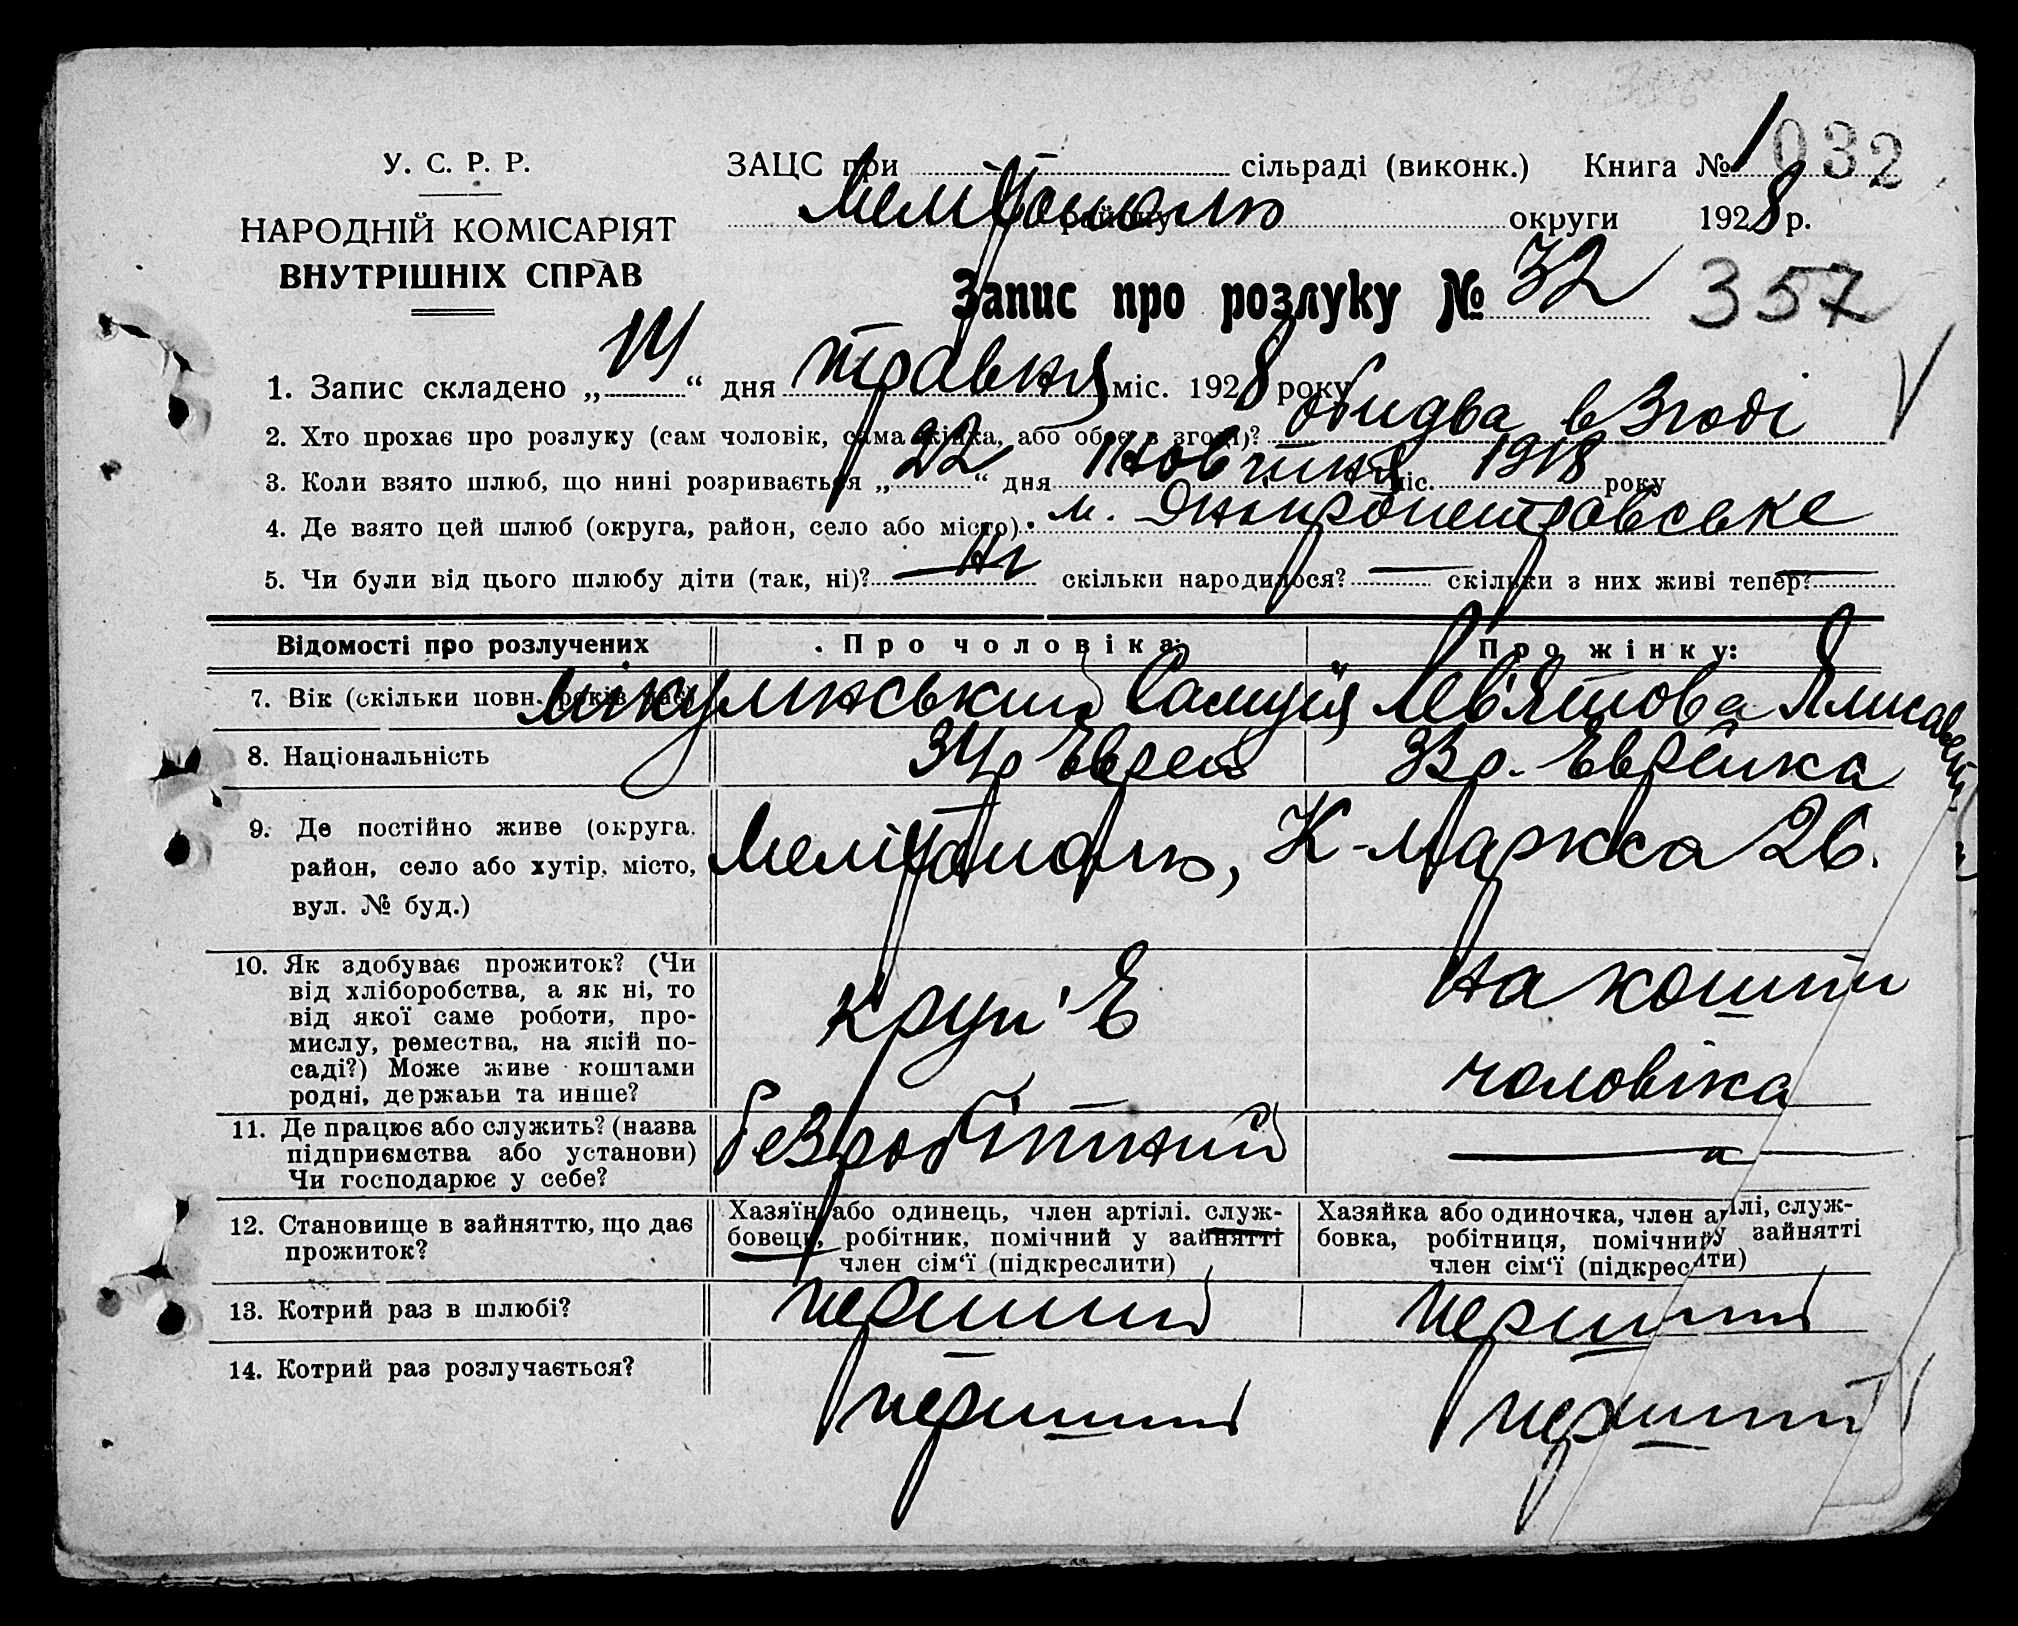 У. С. Р. Р.
НАРОДНІЙ КОМІСАРІЯТ
ВНУТРІШНІХ СПРАВ
ЗАЦС при сільраді (виконк.) Книга № 1 032
Мелітополю району округи 1928 р.
Запис про розлуку № 32 357
1. Запис складено „ 14 “ дня травня міс. 1928 року
2. Хто прохає про розлуку (сам чоловік, сама жінка, або обоє в згоді)? обидва в згоді
3. Коли взято шлюб, що нині розривається „ 22 “ дня жовтня міс. 1918 року
4. Де взято цей шлюб (округа, район, село або місто) м. Дніпропетровське
5. Чи були від цього шлюбу діти (так, ні)? — Ні скільки народилося? — скільки з них живі тепер? —
Відомості про розлучених Про чоловіка: Про жінку:
7. Вік (скільки повн. років має) Микулинський Самуїл Лев'ятова
8. Національність 34 р Еврей 33 р. Еврейка
9. Де постійно живе (округа, район, село або хутір, місто, вул. № буд.) Мелітополь, К-Маркса 26.
10. Як здобуває прожиток? (Чи
від хліборобства, а як ні, то
від якої саме роботи, про-
мислу, ремества, на якій по-
саді?) Може живе коштами
родні, держави та инше?
круп'є
на кошти
чоловіка
11. Де працює або служить? (назва
підприємства або установи)
Чи господарює у себе?
безробітний
—„—
12. Становище в зайняттю, що дає
прожиток?
Хазяїн або одинець, член артілі, служ-
бовець, робітник, помічний у зайнятті
член сім‘ї (підкреслити)
Хазяйка або одиночка, член артілі, служ-
бовка, робітниця, помічний у зайнятті
член сім‘ї (підкреслити)
13. Котрий раз в шлюбі? перший перший
14. Котрий раз розлучається? перший перший